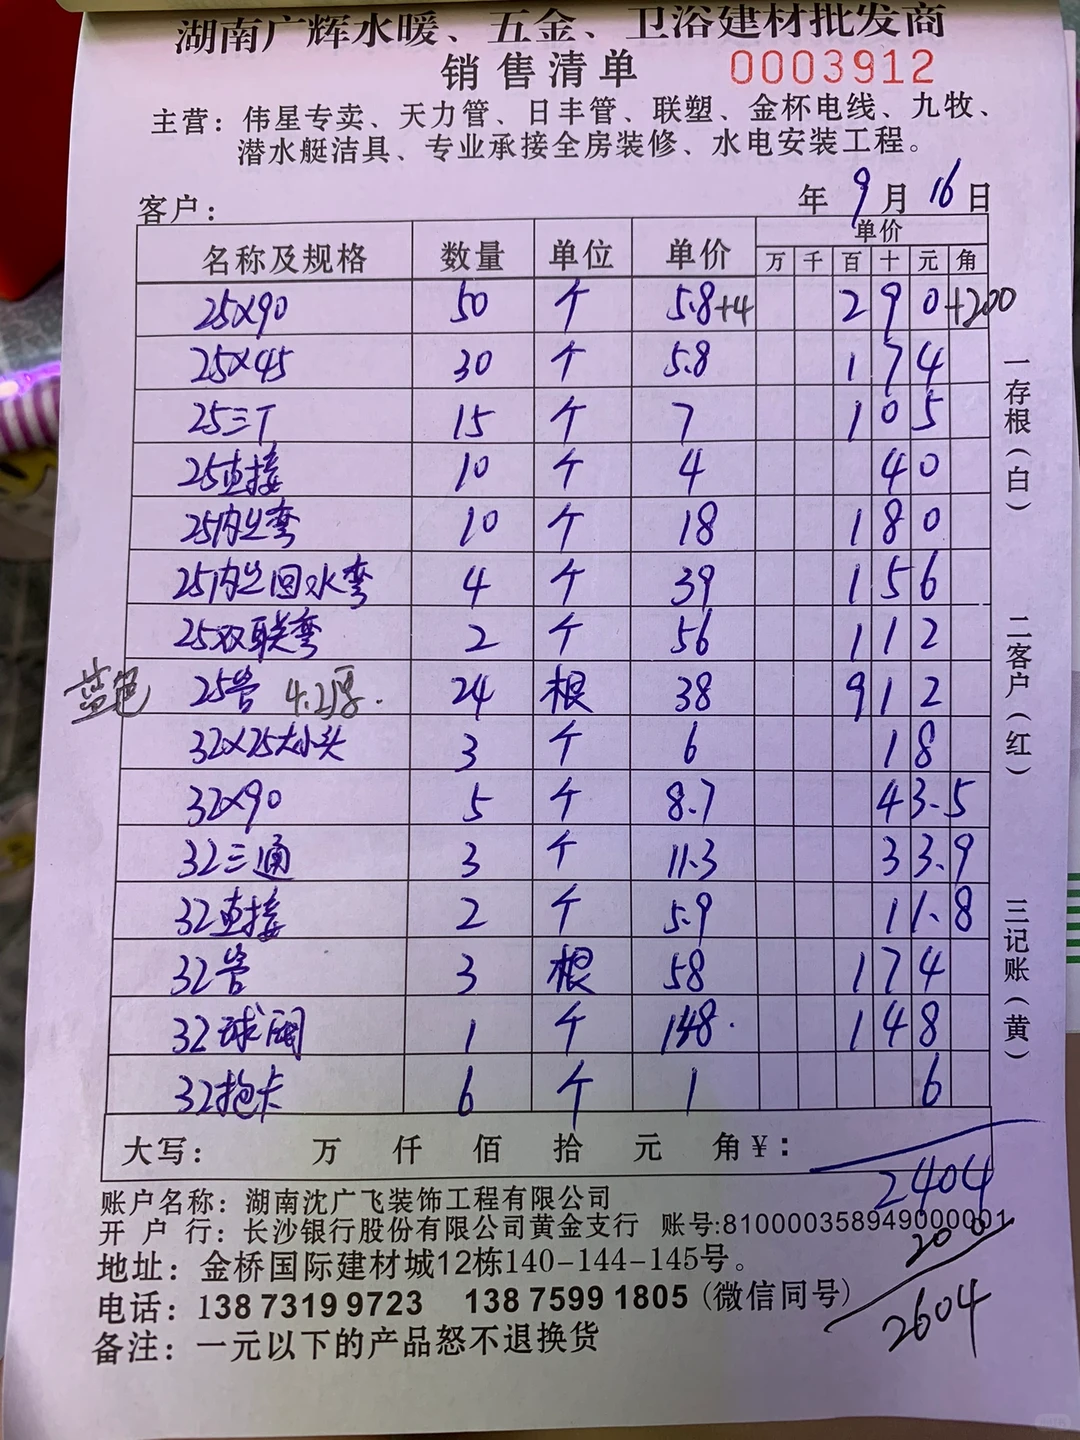 湖南广辉水暖、五金、卫浴建材批发商
销售清单 0003912
主营：伟星专卖、天力管、日丰管、联塑、金杯电线、九牧、
潜水艇洁具、专业承接全房装修、水电安装工程。
客户： 年 9 月 16 日
名称及规格 数量 单位 单价 单价
万 千 百 十 元 角
25×90 50 个 5.8+4 2 9 0 +200
25×45 30 个 5.8 1 7 4
25三T 15 个 7 1 0 5
25直接 10 个 4 4 0
25内丝弯 10 个 18 1 8 0
25内丝回水弯 4 个 39 1 5 6
25双联弯 2 个 56 1 1 2
蓝色 25管 4.2厚. 24 根 38 9 1 2
32×25大小头 3 个 6 1 8
32×90 5 个 8.7 4 3.5
32三通 3 个 11.3 3 3.9
32直接 2 个 5.9 1 1.8
32管 3 根 58 1 7 4
32球阀 1 个 148. 1 4 8
32抱卡 6 个 1 6
大写： 万 仟 佰 拾 元 角 ¥：
2404
账户名称：湖南沈广飞装饰工程有限公司
开户行：长沙银行股份有限公司黄金支行 账号:810000358949000001
200
地址：金桥国际建材城12栋140-144-145号。
电话：138 7319 9723 138 7599 1805 (微信同号)
2604
备注：一元以下的产品怒不退换货
一存根（白）
二客户（红）
三记账（黄）